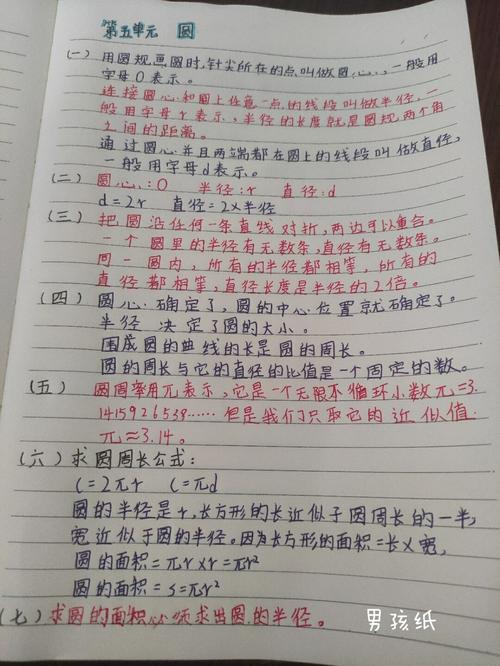 第五单元 圆
(一) 用圆规画圆时,针尖所在的点叫做圆心,一般用
字母O表示。
连接圆心和圆上任意一点的线段叫做半径,一
般用字母r表示,半径的长度就是圆规两个角
之间的距离。
通过圆心并且两端都在圆上的线段叫做直径,
一般用字母d表示。
(二) 圆心:O 半径:r 直径:d
d=2r 直径=2×半径
(三) 把圆沿任何一条直线对折,两边可以重合。
一个圆里的半径有无数条,直径有无数条。
同一圆内,所有的半径都相等,所有的
直径都相等,直径长度是半径的2倍。
(四) 圆心确定了,圆的中心位置就确定了。
半径 决定了圆的大小。
围成圆的曲线的长是圆的周长。
圆的周长与它的直径的比值是一个固定的数。
(五) 圆周率用兀表示,它是一个无限不循环小数兀=3.
1415926538……但是我们只取它的近似值
兀≈3.14。
(六) 求圆周长公式:
C=2兀r C=兀d
圆的半径是r,长方形的长近似于圆周长的一半,
宽近似于圆的半径。因为长方形的面积=长×宽,
圆的面积=兀r×r=兀r²
圆的面积=s=兀r²
(七) 求圆的面积必须求出圆的半径。
男孩纸